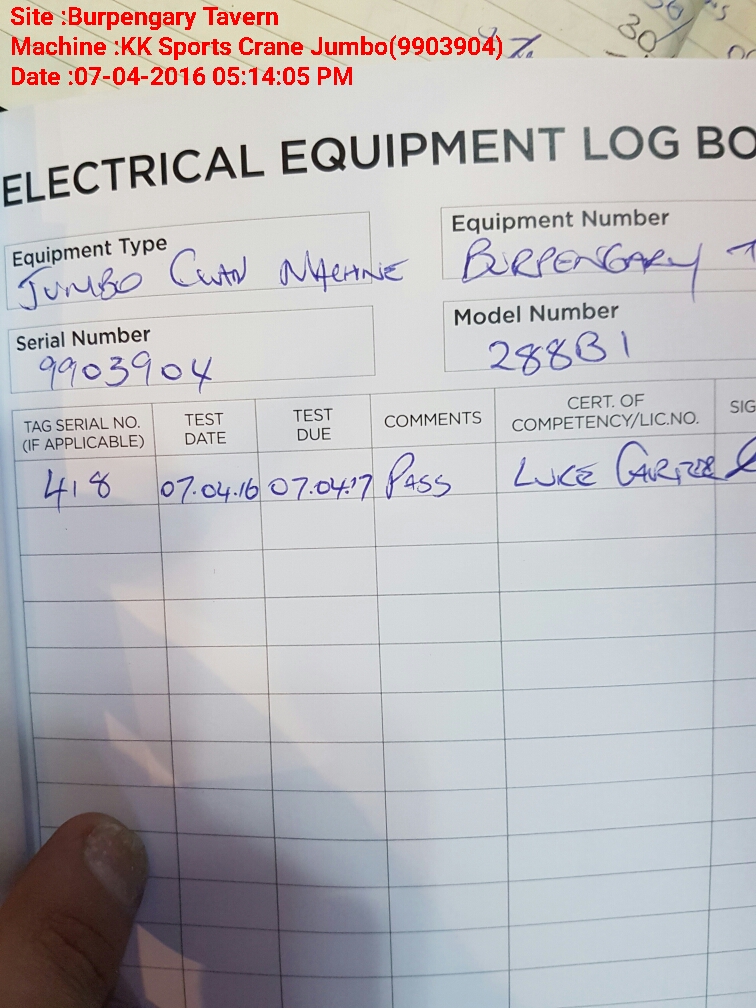 Site :Burpengary Tavern
Machine :KK Sports Crane Jumbo(9903904)
Date :07-04-2016 05:14:05 PM
30.
ELECTRICAL EQUIPMENT LOG BO
Equipment Type
JUMBO MACHINE
Equipment Number
BURPENGARY T
Serial Number
9903904
Model Number
288B1
TAG SERIAL NO. (IF APPLICABLE)
TEST DATE
TEST DUE
COMMENTS
CERT. OF COMPETENCY/LIC.NO.
SIG
418 07.04.16 07.04.17 PASS LUKE